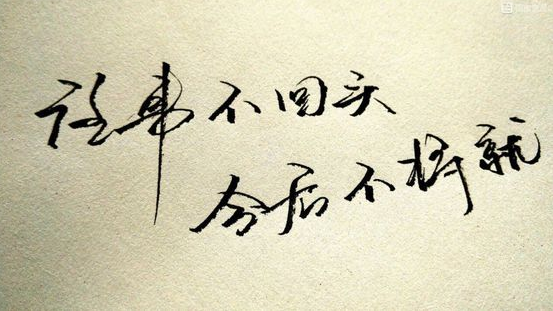 往事不回头
今后不将就